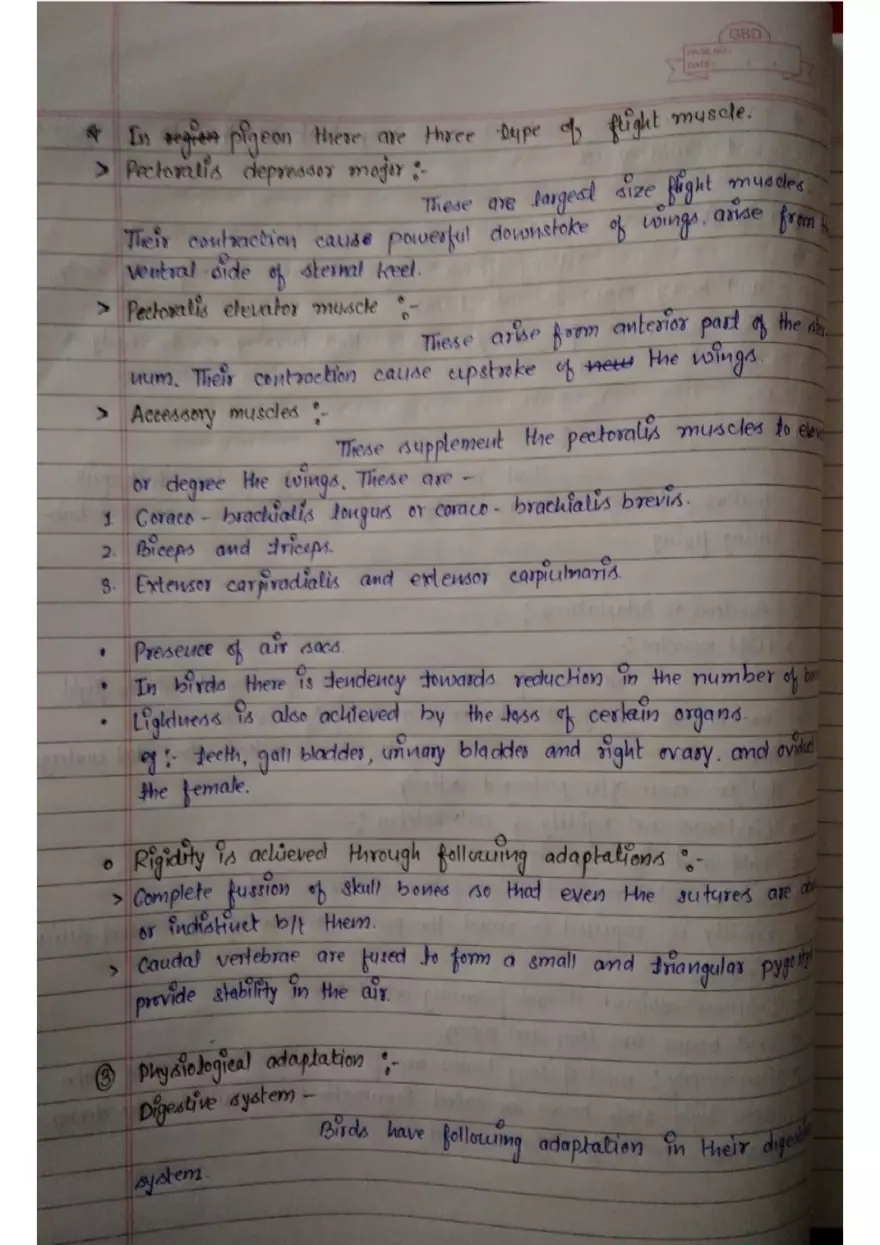 GBD
PAGE NO:
DATE: / /
* In region pigeon there are three type of flight muscle.
> Pectoralis depressor major :-
These are largest size flight muscles.
Their contraction cause powerful downstoke of wings. arise from
ventral side of sternal keel.
> Pectoralis elevator muscle :-
These arise from anterior part of the
num. Their contraction cause upstroke of new the wings.
> Accessory muscles :-
These supplement the pectoralis muscles to
or degree the wings. These are -
1 Coraco - brachialis longus or coraco - brachialis brevis.
2. Biceps and triceps.
3. Extensor carpiradialis and extensor carpiulnaris.
• Presence of air sacs.
• In birds there is tendency towards reduction in the number of
• Lightness is also achieved by the loss of certain organs.
eg :- teeth, gall bladder, urinary bladder and right ovary. and
the female.
o Rigidity is achieved through following adaptations :-
> Complete fussion of skull bones so that even the sutures are
or indistinct b/t them.
> Caudal vertebrae are fused to form a small and triangular
provide stability in the air.
③ Physiological adaptation :-
Digestive system -
Birds have following adaptation in their
system.